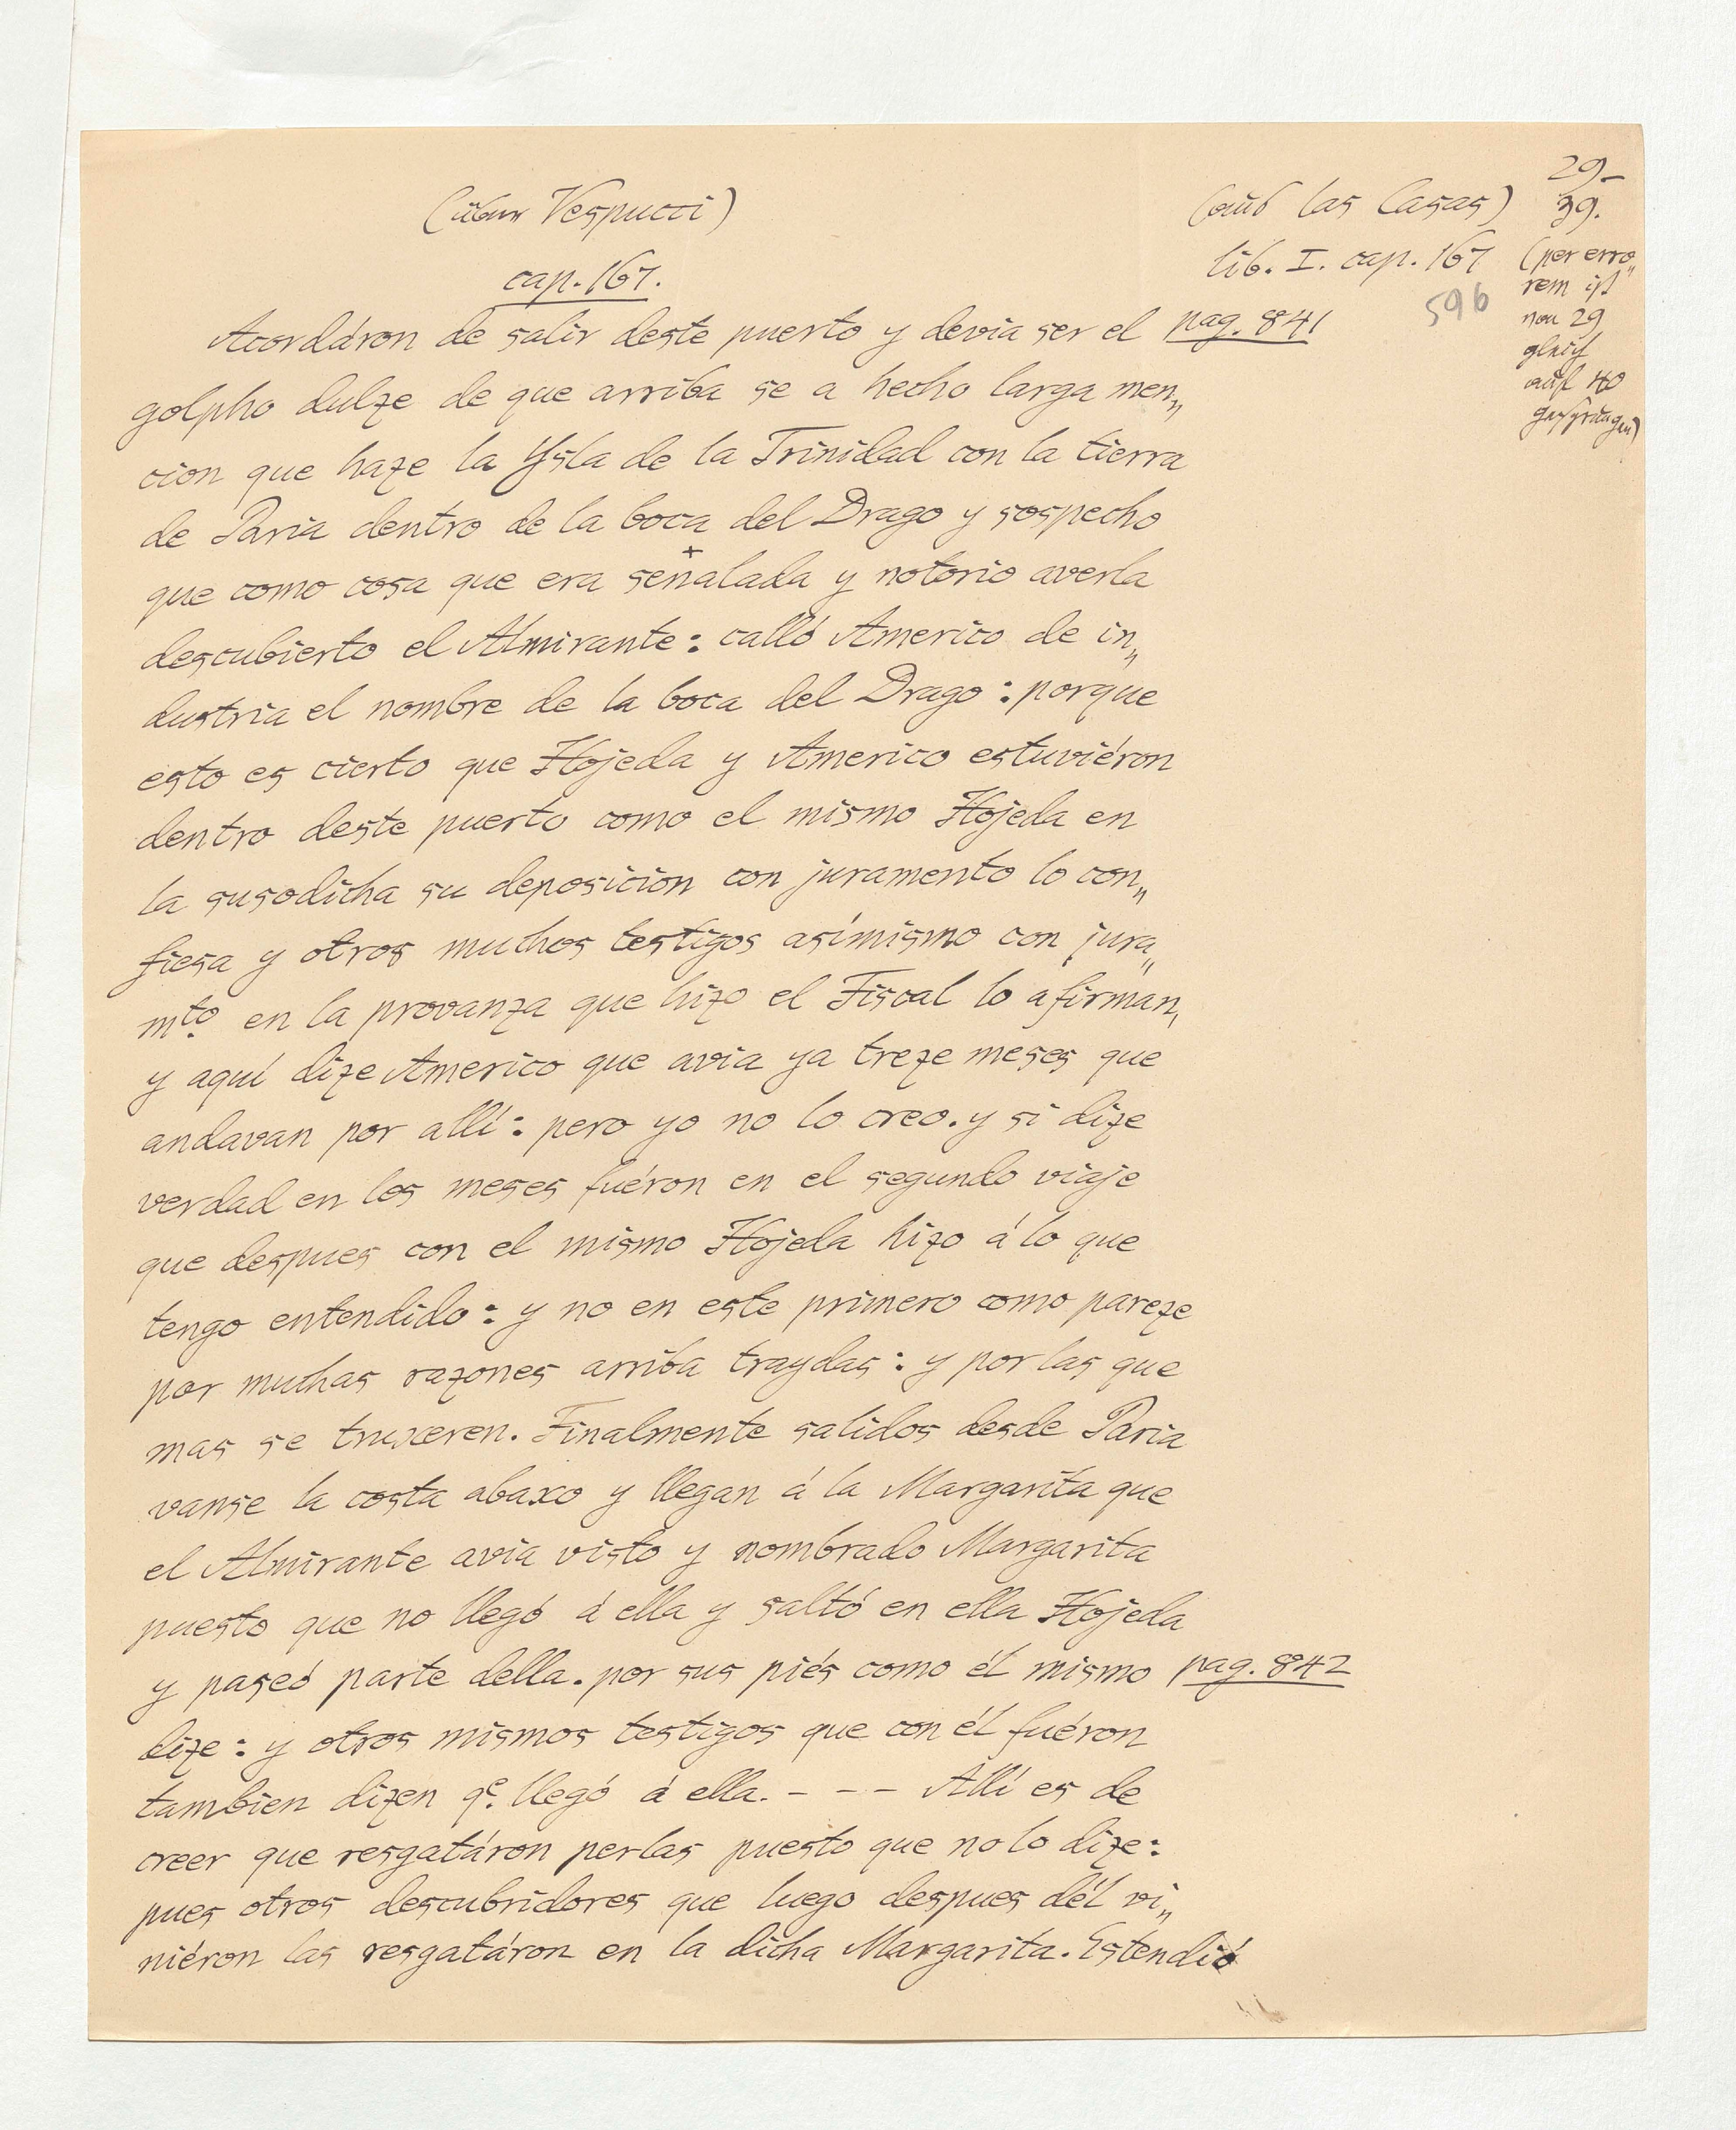 29–
39.
(über Vespucci)
(aus las Casas)
lib. I. cap. 167
596
(per erro„
rem ist
von 29
gleich
auf 40
gesprungen)
cap. 167.
Acordáron de salir deste puerto y devia ser el pag. 841
golpho dulze de que arriba se a hecho larga men„
cion que haze la Ysla de la Trinidad con la tierra
de Paria dentro de la boca del Drago y sospecho
que como cosa que era señalada y notorio averla
descubierto el Almirante: calló Americo de in„
dustria el nombre de la boca del Drago: porque
esto es cierto que Hojeda y Americo estuviéron
dentro deste puerto como el mismo Hojeda en
la susodicha su deposicion con juramento lo con„
fiesa y otros muchos testigos asímismo con jura„
mto. en la provanza que hizo el Fiscal lo afirman,
y aquí dize Americo que avia ya treze meses que
andavan por allí: pero yo no lo creo. y si dize
verdad en los meses fuéron en el segundo viaje
que despues con el mismo Hojeda hizo á lo que
tengo entendido: y no en este primero como pareze
por muchas razones arriba traydas: y por las que
mas se truxeren. Finalmente salidos desde Paria
vanse la costa abaxo y llegan á la Margarita que
el Almirante avia visto y nombrado Margarita
puesto que no llegó á ella y saltó en ella Hojeda
y paseó parte della. por sus piés como él mismo pag. 842
dize: y otros mismos testigos que con él fuéron
tambien dizen qe. llegó á ella. - - - Allí es de
creer que resgatáron perlas puesto que no lo dize:
pues otros descubridores que luego despues dél vi„
niéron las resgatáron en la dicha Margarita. Estendió